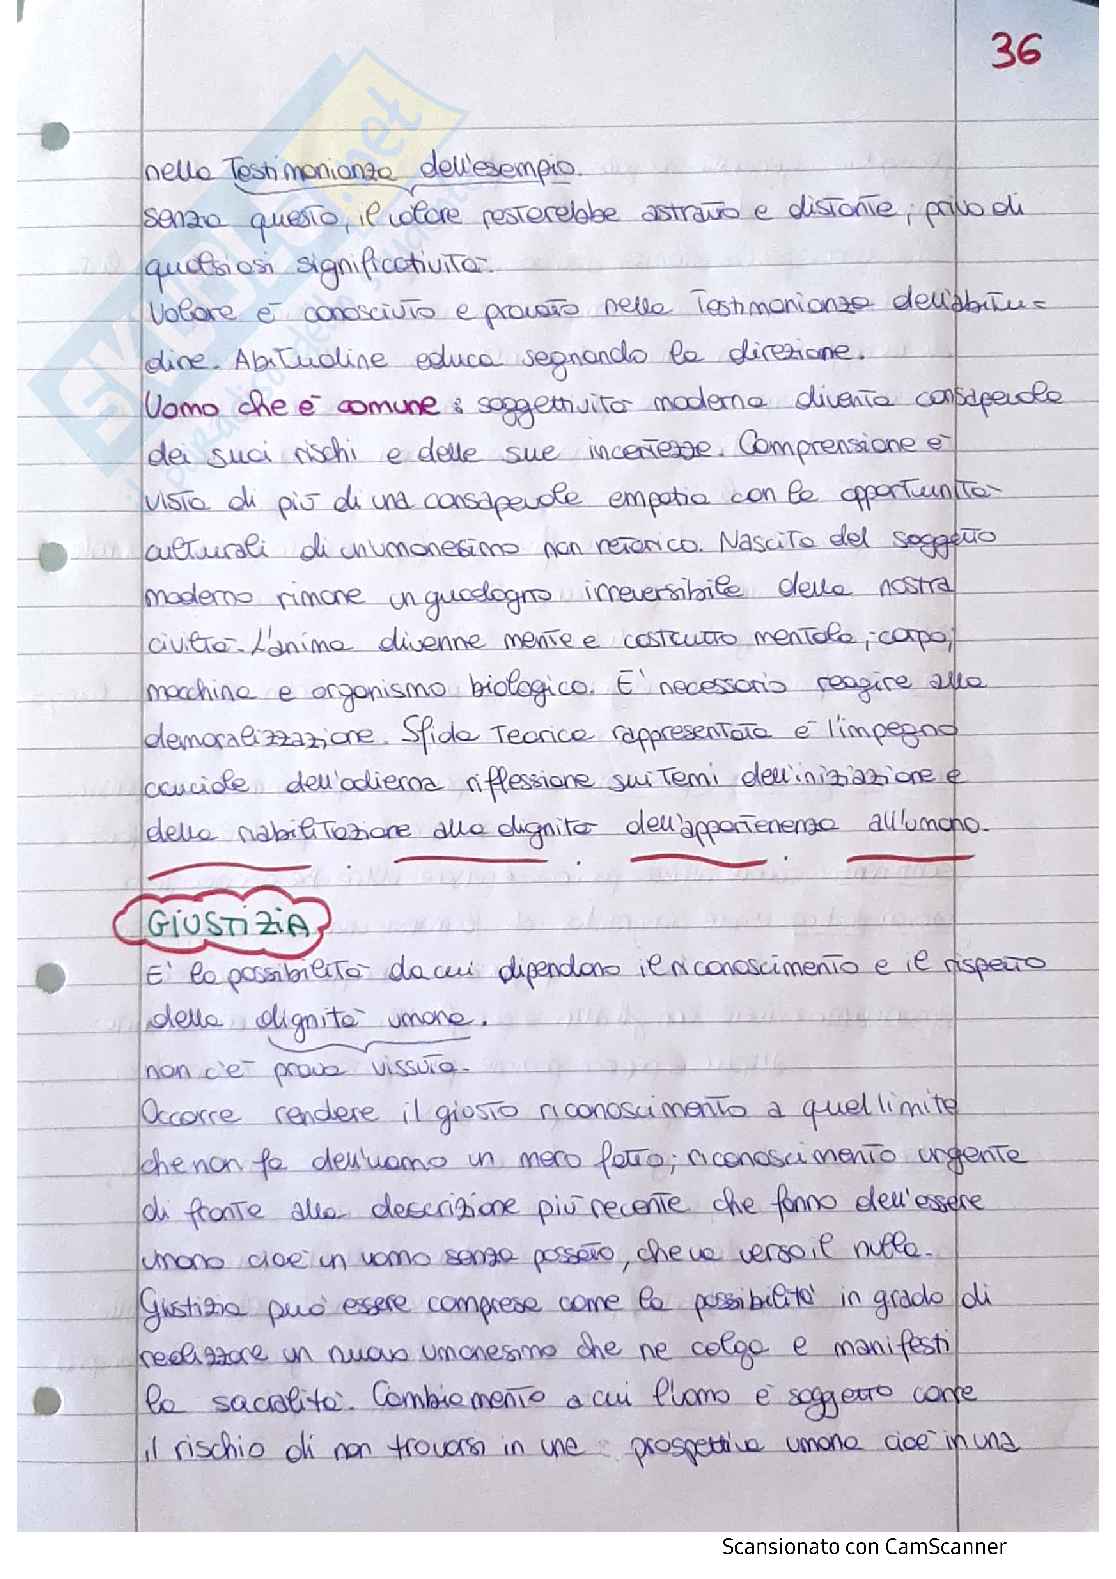 36
nella Testimonianza dell'esempio.
senza questo, il valore resterebbe astratto e distante, privo di
qualsiasi significatività.
Valore è conosciuto e provato nella Testimonianza dell'abitu=
dine. Abitudine educa segnando la direzione.
Uomo che è comune: soggettività moderna diventa consapevole
dei suoi rischi e delle sue incertezze. Comprensione è
vista di più di una consapevole empatia con le opportunità
culturali di un umanesimo non retorico. Nascita del soggetto
moderno rimane un guadagno irreversibile della nostra
civiltà. L'anima divenne mente e costrutto mentale, corpo,
macchina e organismo biologico. E' necessario reagire alla
demoralizzazione. Sfida Teorica rappresentata è l'impegno
cruciale dell'odierna riflessione sui Temi dell'iniziazione e
della riabilitazione alla dignità dell'appartenenza all'umano.
GIUSTIZIA
E' la possibilità da cui dipendono il riconoscimento e il rispetto
della dignità umana.
non c'è prova vissuta.
Occorre rendere il giusto riconoscimento a quel limite
che non fa dell'uomo un mero fatto; riconoscimento urgente
di fronte alla descrizione più recente che fanno dell'essere
umano cioè un uomo senza passato, che va verso il nulla.
Giustizia può essere compresa come la possibilità in grado di
realizzare un nuovo umanesimo che ne colga e manifesti
la sacralità. Cambiamento a cui l'uomo è soggetto corre
il rischio di non trovarsi in una prospettiva umana cioè in una
SKUOLA.net
Scansionato con CamScanner